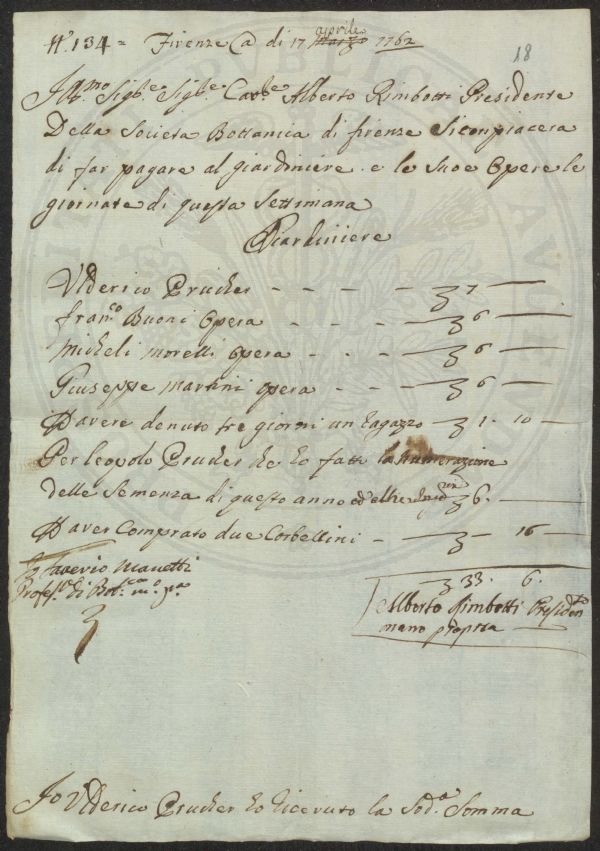 N.º 134 = Firenze @ di 17 aprile 1762
18
Ill.mo Sig.re Sig.re Cav.re Alberto Rimbotti Presidente
Della Societa Bottanica di firenze Si conpiacera
di far pagare al giardiniere e le Sue Opere le
giornate di questa Settimana
Giardiniere
Vlderico Prucher - - - - 3 7 —
fran.co Buoni Opera - - - - 3 6 —
Micheli Morelli Opera - - - 3 6 —
Giuseppe Martini Opera - - - 3 6 —
D Avere denuto tre giorni un Ragazzo — 3 1. 10 —
Per leopolo Prucher che ho fatti la numerazione
delle Semenza di questo anno 3 6. —
D Aver Comprato due Corbellini - 3 — 16 —
Saverio Manetti
Profes.re di Bot.ca m.o p.a
3 33. 6.
Alberto Rimbotti Presiden.te
mano propria
Io Vlderico Prucher ho ricevuto la Sod.a Somma